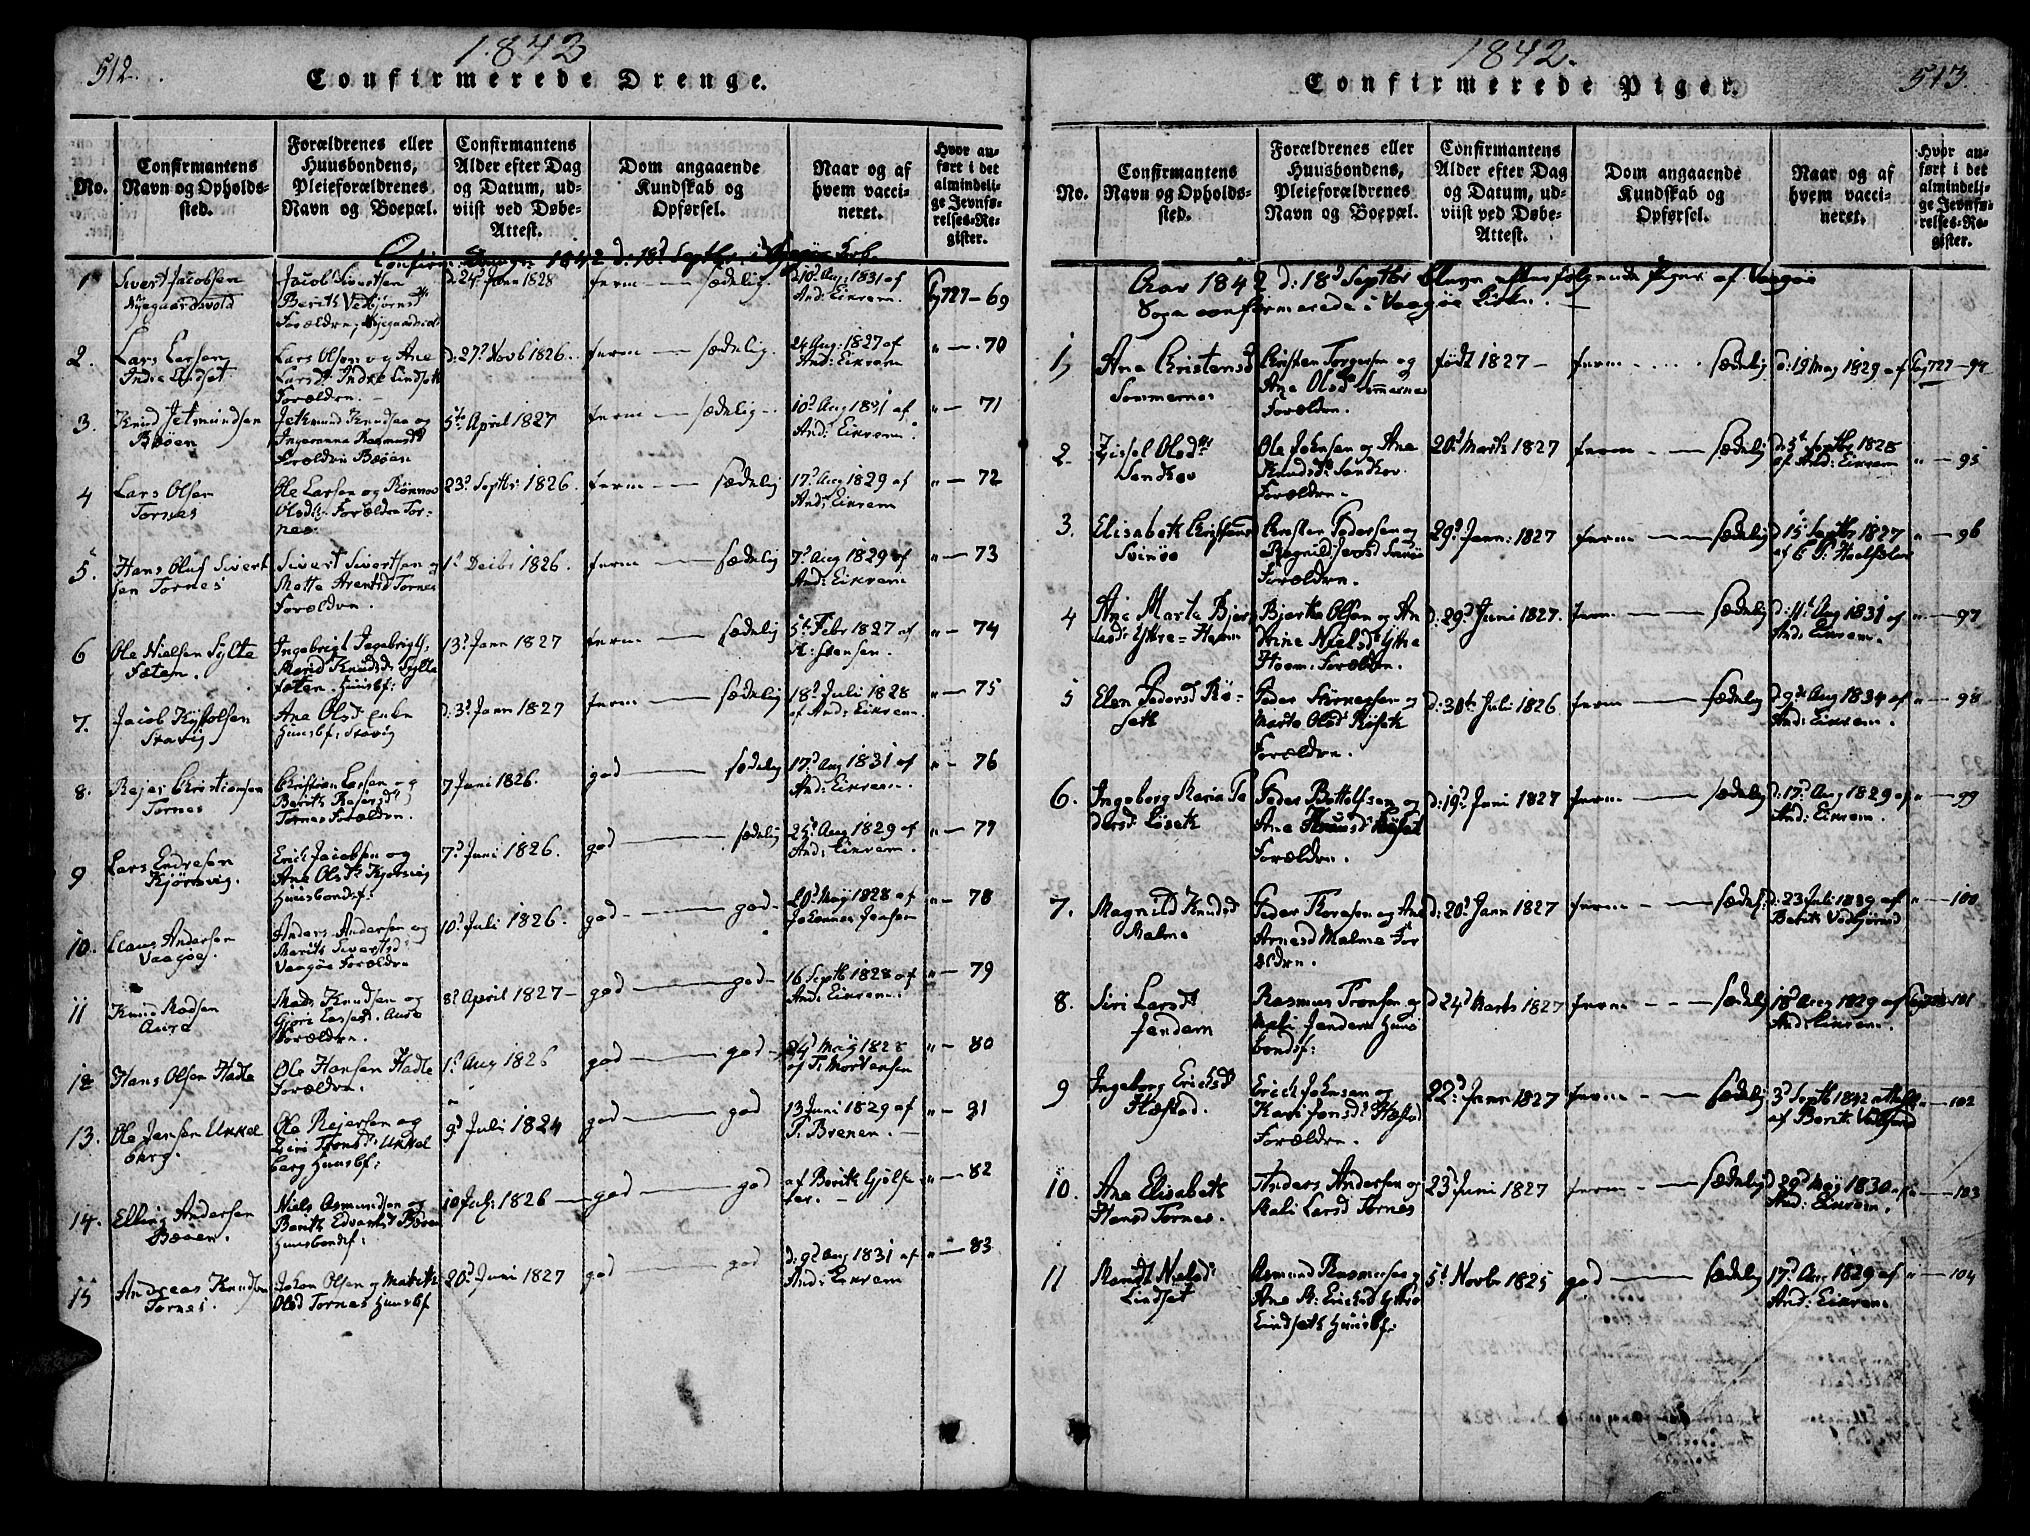 512.
1842
Confirmerede Drenge.
No.
Confirmantens
Navn og Opholds-
sted.
Forældrenes eller
Huusbondens,
Pleieforældrenes
Navn og Boepæl.
Confirmantens
Alder efter Dag
og Datum, ud-
viist ved Døbe-
Attest.
Dom angaaende
Kundskab og
Opførsel.
Naar og af
hvem vacci-
neret.
Hvor an-
ført i det
almindeli-
ge Jevnfø-
relses-Re-
gister.
1842 d: 18d Septbr i
1
Sivert Jacobsen
Nyegaardsvold
Jacob Sivertsen
Berith Vedhjørnsd
Forældre, Nyegaardsvold
d: 24d Janr 1828
ferm — sædelig.
d 10d Aug 1831 af
And: Eikrem.
Pg 727 — 69
2.
Lars Larsen
Indre Lindset
Lars Olsen og Ane
Larsd Indre Lindseth
Forældre. —
d: 27d Novb 1826.
ferm — sædelig.
24 Aug: 1827 af
And: Eikrem
" — 70
3.
Knud Jetmundsen
Bøen
Jetmund Knudsen og
Ingeranna Rasmusd
Forældre Bøen
5te April 1827
ferm — sædelig
10d Aug 1831 af
And: Eikrem
" — 71
4
Lars Olsen
Tornes
Ole Larsen og Rønnov
Olsd Forældre Tor-
nes
23d Septbr 1826.
ferm — sædelig
17d Aug 1829 af
And: Eikrem
" — 72
5.
Hans Oluf Sivert
sen Tornes
Sivert Sivertsen og
Mette Arentsd Tornes
Forældre.
1d Decbr 1826.
ferm — sædelig
7d Aug 1829 af
And: Eikrem
" — 73
6
Ole Nielsen Sylte
Sæten.
Ingebrigt Ingebrigts,
Marid Knudsd Sylte
sæten. Huusbf:
13d Janr 1827
ferm — sædelig
5te Febr 1827 af
" — 74
7.
Jacob
Stavig
Ane Olsd Enke
Huusbf: Stavig
d: 3d Janr 1827
ferm — sædelig
18d Juli 1828
af And: Eikrem
" — 75
8.
Rejer Christiansen
Tornes
Christian Larsen og
Berith Rejersd
Tornes Forældre.
7 Juni 1826.
god — sædelig
17d Aug 1831 af
And: Eikrem.
" — 76
9
Lars Endresen
Kjørsvig.
Erich Jacobsen og
Ane Olsd Kjørsvig
Huusbondsf:
7d Juni 1826.
god — sædelig
25d Aug 1829 af
And: Eikrem.
" — 77
10.
Claus Andersen
Vaagøe.
Anders Andersen og
Marith Sivertsd
Vaagøe Forældre
10d Juli 1826.
god — god
20d May 1828 af
Johannes Jensen
" — 78
11
Knud Madsen
Aure
Mads Knudsen og
Gjøri Lassesd. Aure
Forældre.
8d April 1827 —
god — god
16 Septb 1828 af
And: Eikrem.
" — 79
12
Hans Olsen Hadle
Ole Hansen Hadle
Forældre.
1d Aug 1826
god — god
24d May 1828
af T: Mortensen
" — 80
13.
Ole Jensen Ukkel
berg.
Ole Rejersen og
Ukkel
berg Huusbf:
9d Juli 1824
god — god
13 Juni 1829 af
" — 81
14.
Elling Andersen
Bøen.
Niels Asmundsen og
Berith Edvartsd Bøen
Huusbondsf:
10 Juli 1826 —
god — god
af Berith
" — 82
15
Andreas Knudsen
Tornes.
Johan Olsen og Marith
Olsd Tornes Huusbf
20d Juni 1827
god — god
d: 9d Aug 1831 af
And: Eikrem
" — 83
513.
1842.
Confirmerede Piger.
No.
Confirmantens
Navn og Opholds-
sted.
Forældrenes eller
Huusbondens,
Pleieforældrenes
Navn og Boepæl.
Confirmantens
Alder efter Dag
og Datum, ud-
viist ved Døbe-
Attest.
Dom angaaende
Kundskab og
Opførsel.
Naar og af
hvem vacci-
neret.
Hvor an-
ført i det
almindeli-
ge Jevnfø-
relses-Re-
gister.
Aar 1842 d: 18d Septbr bleve efterfølgende Piger af Vaagøe
Sogn confirmerede i Vaagøe Kirke. —
1
Ane Christensd
Sommernes
Christen Torgersen og
Ane Olsd Sommernes
Forældre.
født 1827 —
ferm — sædelig
d: 19 May 1829 af
Pg 727 — 94
2
Zissel Olsd
Sandkov
Ole Johnsen og Ane
Knudsd Sandkov.
Forældre.
20d Marts 1827
ferm — sædelig
d: 5te Septbr 1828
af And: Eikrem
" — 95
3.
Elisabeth
Svinøe
Christen Pedersen og
Svinøe
Forældre.
29d Janr: 1827
ferm — sædelig
d 15d Septbr 1827
" — 96
4
Ane Marta
Yttre-Haem
Bjerthe Olsen og An
drine Nielsd Yttre
Hoem. Forældre.
d: 29d Juni 1827.
ferm — sædelig
d: 11te Aug 1831 af
And: Eikrem.
" — 97
5
Elen Pedersd Rø-
seth
Peder og
Marte Olsd Røseth
Forældre.
d: 30te Juli 1826
ferm — sædelig
d 9de Aug 1834 af
And: Eikrem.
" — 98
6.
Ingeborg Maria Pe
dersd
Peder Bottolfsen og
Ane
Forældre.
d: 19d Juni 1827
ferm — sædelig
d: 17d Aug 1829 af
And: Eikrem.
" — 99
7.
Magnild Knudsd
Malme
Peder Toresen og Ane
Arnesd Malme For
ældre.
d: 20d Janr 1827
ferm — sædel:
d: 23 Juli 1839 af
Berith Vedhjørnsd
" — 100
8.
Siri Larsd
Jendem
Rasmus Tronsen og
Mali Jendem Huus
bondsf:
d 24d Marts 1827
ferm — sædelig
18d Aug 1829 af
And: Eikrem.
— 101
9
Ingeborg Erichsd
Hæstad.
Erich Johnsen og
Kari Jonsd Hæstad
Forældre.
22d Janr 1827
ferm — sædelig
3d Septb 1842
af Berith
" — 102
10.
Ane Elisabeth
Hansd Tornes.
Anders Andersen og
Mali Larsd Tornes
23d Juni 1827
ferm — sædelig
d 29d May 1830 af
And: Eikrem.
" — 103
11
Marith Nielsd
Lindset
Asmund Rasmussen og
Ane Erichsd Yttre
Lindseth Huusbf:
5d Novbr 1825
god — sædelig
17d Aug 1829 af
And: Eikrem
" — 104